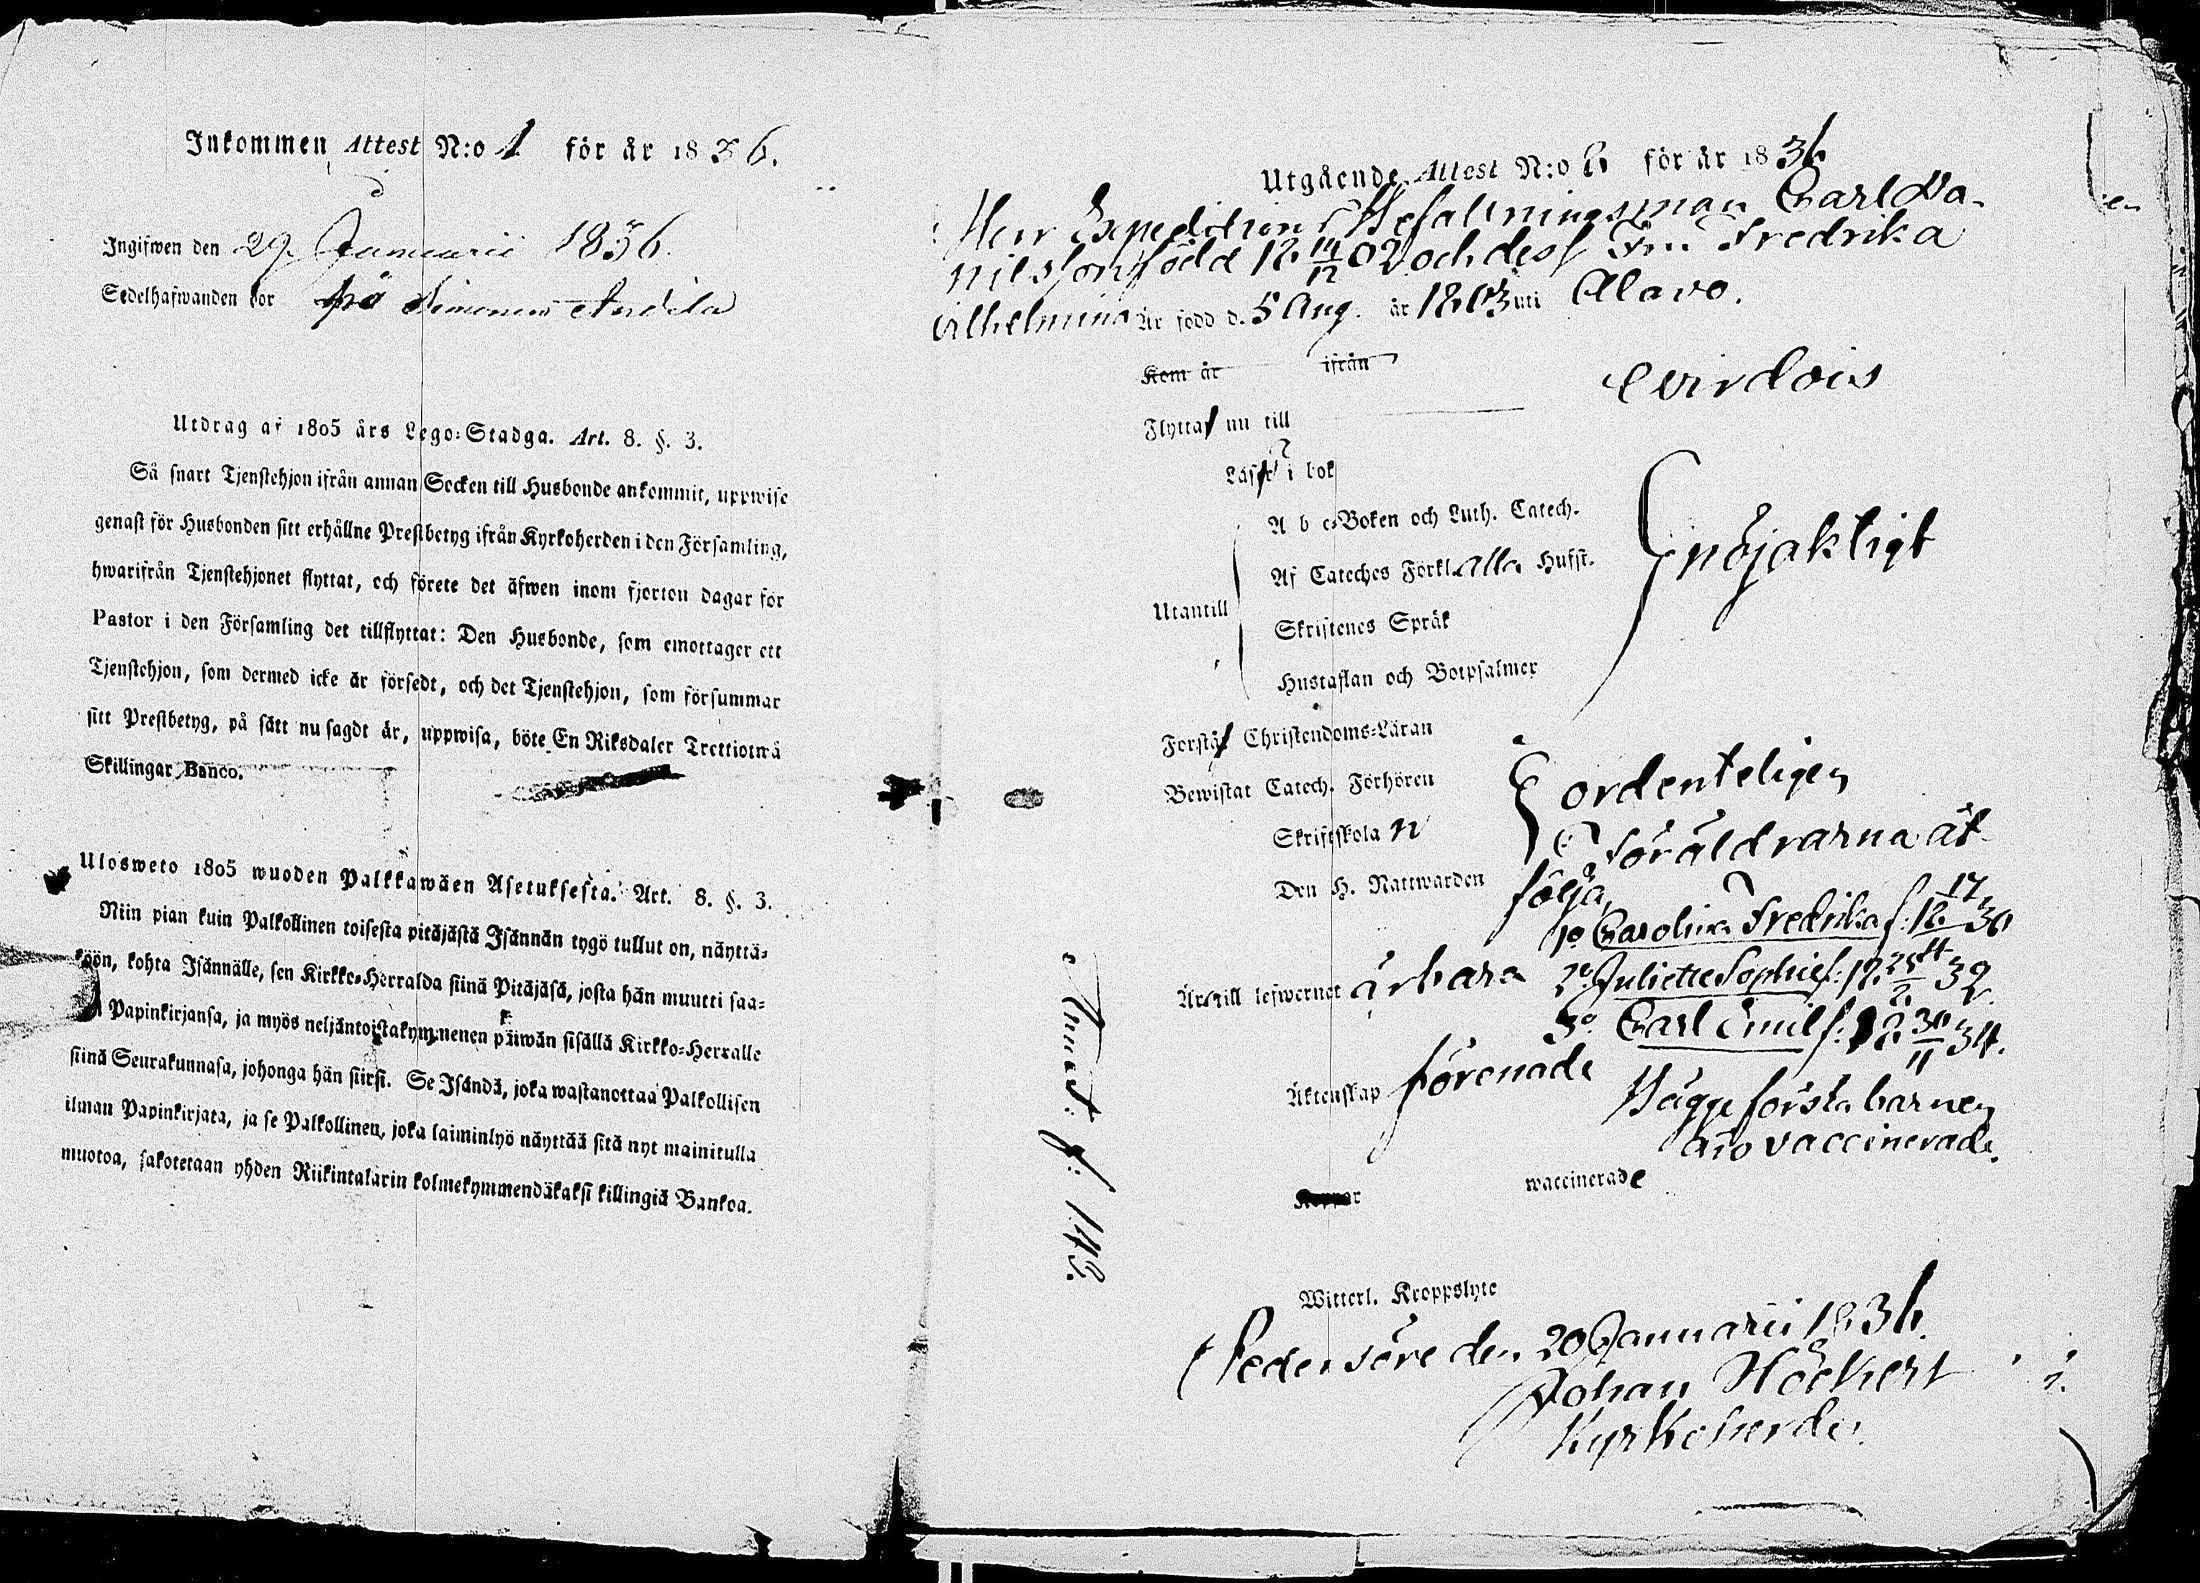 Inkommen Attest N:o 1 för år 1836.
Ingifwen den 29 Januarii 1836.
Sedelhafwanden bor på
Utdrag af 1805 års Lego-Stadga. Art. 8. §. 3.
Så snart Tjenstehjon ifrån annan Socken till Husbonde ankommit, uppwise
genast för Husbonden sitt erhållne Prestbetyg ifrån Kyrkoherden i den Församling,
hwarifrån Tjenstehjonet flyttat, och förete det äfwen inom fjorton dagar för
Pastor i den Församling det tillflyttat: Den Husbonde, som emottager ett
Tjenstehjon, som dermed icke är försedt, och det Tjenstehjon, som försummar
sitt Prestbetyg, på sätt nu sagdt är, uppwisa, böte En Riksdaler Trettiotwå
Skillingar Banco.
Ulosweto 1805 wuoden Palkkawäen Asetuksesta. Art. 8. §. 3.
Niin pian kuin Palkollinen toisesta pitäjästä Isännän tygö tullut on, näyttä-
köön, kohta Isännälle, sen Kirkko-Herralda siinä Pitäjäsä, josta hän muutti saa-
Papinkirjansa, ja myös neljäntoistakymmenen päiwän sisällä Kirkko-Herralle
siinä Seurakunnasa, johonga hän siirsi. Se Isändä, joka wastanottaa Palkollisen
ilman Papinkirjata, ja se Palkollinen, joka laiminlyö näyttää sitä nyt mainitulla
muotoa, sakotetaan yhden Riikintalarin kolmekymmendäkaksi killingiä Bankoa.
Utgående Attest N:o 2 för år 1836
Herr Expeditions Befallningsman Carl Da-
nilsson född 18 14/12 02 och dess Fru Fredrika
Wilhelmina Är född d. 5 Aug. år 1803 uti Alavo.
Kom år ifrån
Flyttar nu till Virdois
Läser i bok
A b c-Boken och Luth. Catech.
Af Cateches Förkl. alla Hufst.
Utantill
nöjaktigt
Skriftenes Språk
Hustaflan och Botpsalmer
Förstår Christendoms-Läran
Bewistat Catech. Förhören
ordenteligen
Skriftskolan
Den H. Nattwarden
Föräldrarna åt-
följa,
1o Carolina Fredrika f. 18 17/ 30
2o Juliette Sophie f. 18 25/ 32
Är till lefwernet ärbara
3o Carl Emil f. 18 30/11 34.
Äktenskap förenade
Bägge första barnen
äro vaccinerade.
Koppor waccinerade
Witterl. Kroppslyte
Pedersöre den 20 Januarii 1836.
Johan Höckert
Kyrkoherde.
f. 143.